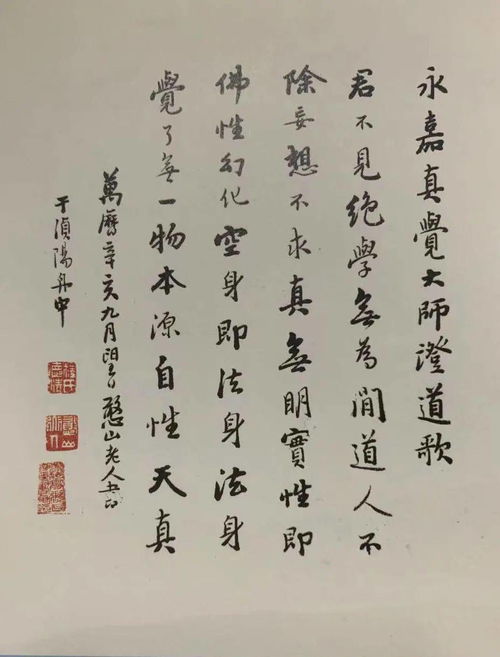 永嘉真覺大師證道歌
君不見絕學無為閒道人不
除妄想不求真無明實性即
佛性幻化空身即法身法身
覺了無一物本源自性天真
萬曆辛亥九月憨山老人書
于湞陽舟中